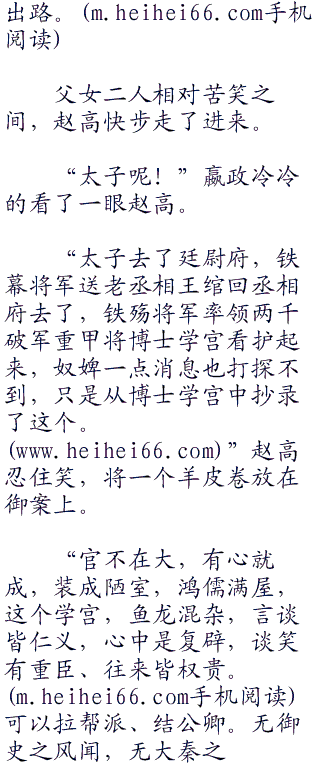 出路。(m.heihei66.com手机
阅读)
父女二人相对苦笑之
间，赵高快步走了进来。
“太子呢！”嬴政冷冷
的看了一眼赵高。
“太子去了廷尉府，铁
幕将军送老丞相王绾回丞相
府去了，铁殇将军率领两千
破军重甲将博士学宫看护起
来，奴婢一点消息也打探不
到，只是从博士学宫中抄录
了这个。
(www.heihei66.com)”赵高
忍住笑，将一个羊皮卷放在
御案上。
“官不在大，有心就
成，装成陋室，鸿儒满屋，
这个学宫，鱼龙混杂，言谈
皆仁义，心中是复辟，谈笑
有重臣、往来皆权贵。
(m.heihei66.com手机阅读)
可以拉帮派、结公卿。无御
史之风闻，无大秦之